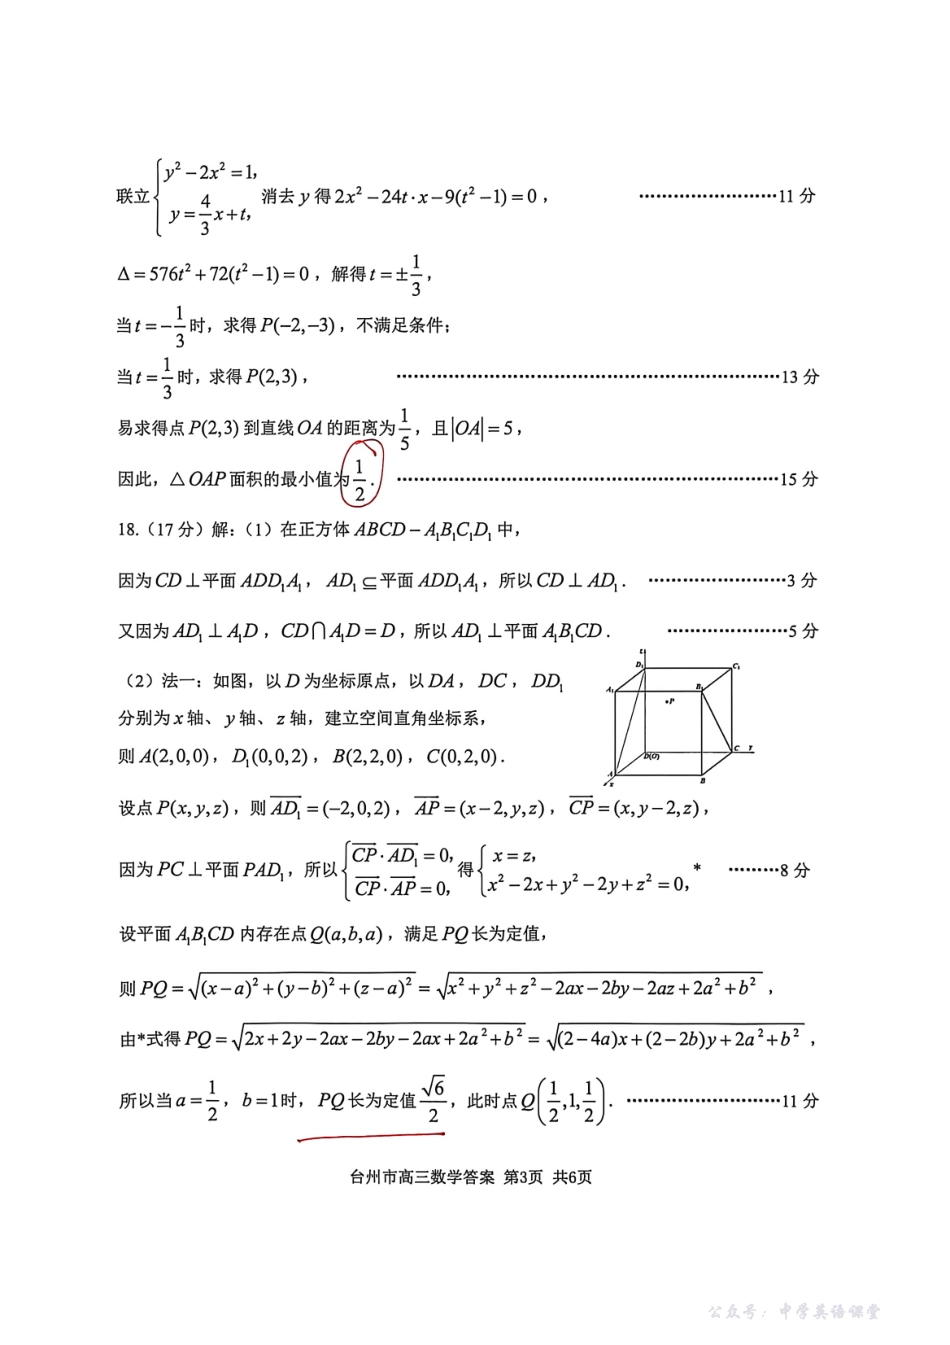 联立{y²－2x²＝1, y＝4/3x＋t, 消去 y 得 2x²－24t·x－9(t²－1)＝0， ························11 分
Δ＝576t²＋72(t²－1)＝0，解得 t＝±1/3，
当 t＝－1/3 时，求得 P(－2,－3)，不满足条件;
当 t＝1/3 时，求得 P(2,3)， ························13 分
易求得点 P(2,3) 到直线 OA 的距离为 1/5，且|OA|＝5，
因此，△OAP 面积的最小值为 1/2. ························15 分
18.（17 分）解:（1）在正方体 ABCD－A₁B₁C₁D₁ 中，
因为 CD⊥平面 ADD₁A₁，AD₁⊆平面 ADD₁A₁，所以 CD⊥AD₁. ························3 分
又因为 AD₁⊥A₁D，CD∩A₁D＝D，所以 AD₁⊥平面 A₁B₁CD. ························5 分
（2）法一：如图，以 D 为坐标原点，以 DA，DC，DD₁
分别为 x 轴、y 轴、z 轴，建立空间直角坐标系，
则 A(2,0,0)，D₁(0,0,2)，B(2,2,0)，C(0,2,0).
D₁ C₁ A₁ B₁ •P D(O) C Y A B x
设点 P(x,y,z)，则 AD₁＝(－2,0,2)，AP＝(x－2,y,z)，CP＝(x,y－2,z)，
因为 PC⊥平面 PAD₁，所以{CP·AD₁＝0, CP·AP＝0, 得{x＝z, x²－2x＋y²－2y＋z²＝0, * ·········8 分
设平面 A₁B₁CD 内存在点 Q(a,b,a)，满足 PQ 长为定值，
则 PQ＝√((x－a)²＋(y－b)²＋(z－a)²)＝√(x²＋y²＋z²－2ax－2by－2az＋2a²＋b²)，
由*式得 PQ＝√(2x＋2y－2ax－2by－2ax＋2a²＋b²)＝√((2－4a)x＋(2－2b)y＋2a²＋b²)，
所以当 a＝1/2，b＝1时，PQ 长为定值 √6/2，此时点 Q(1/2,1,1/2). ························11 分
台州市高三数学答案 第3页 共6页
公众号：中学英语课堂